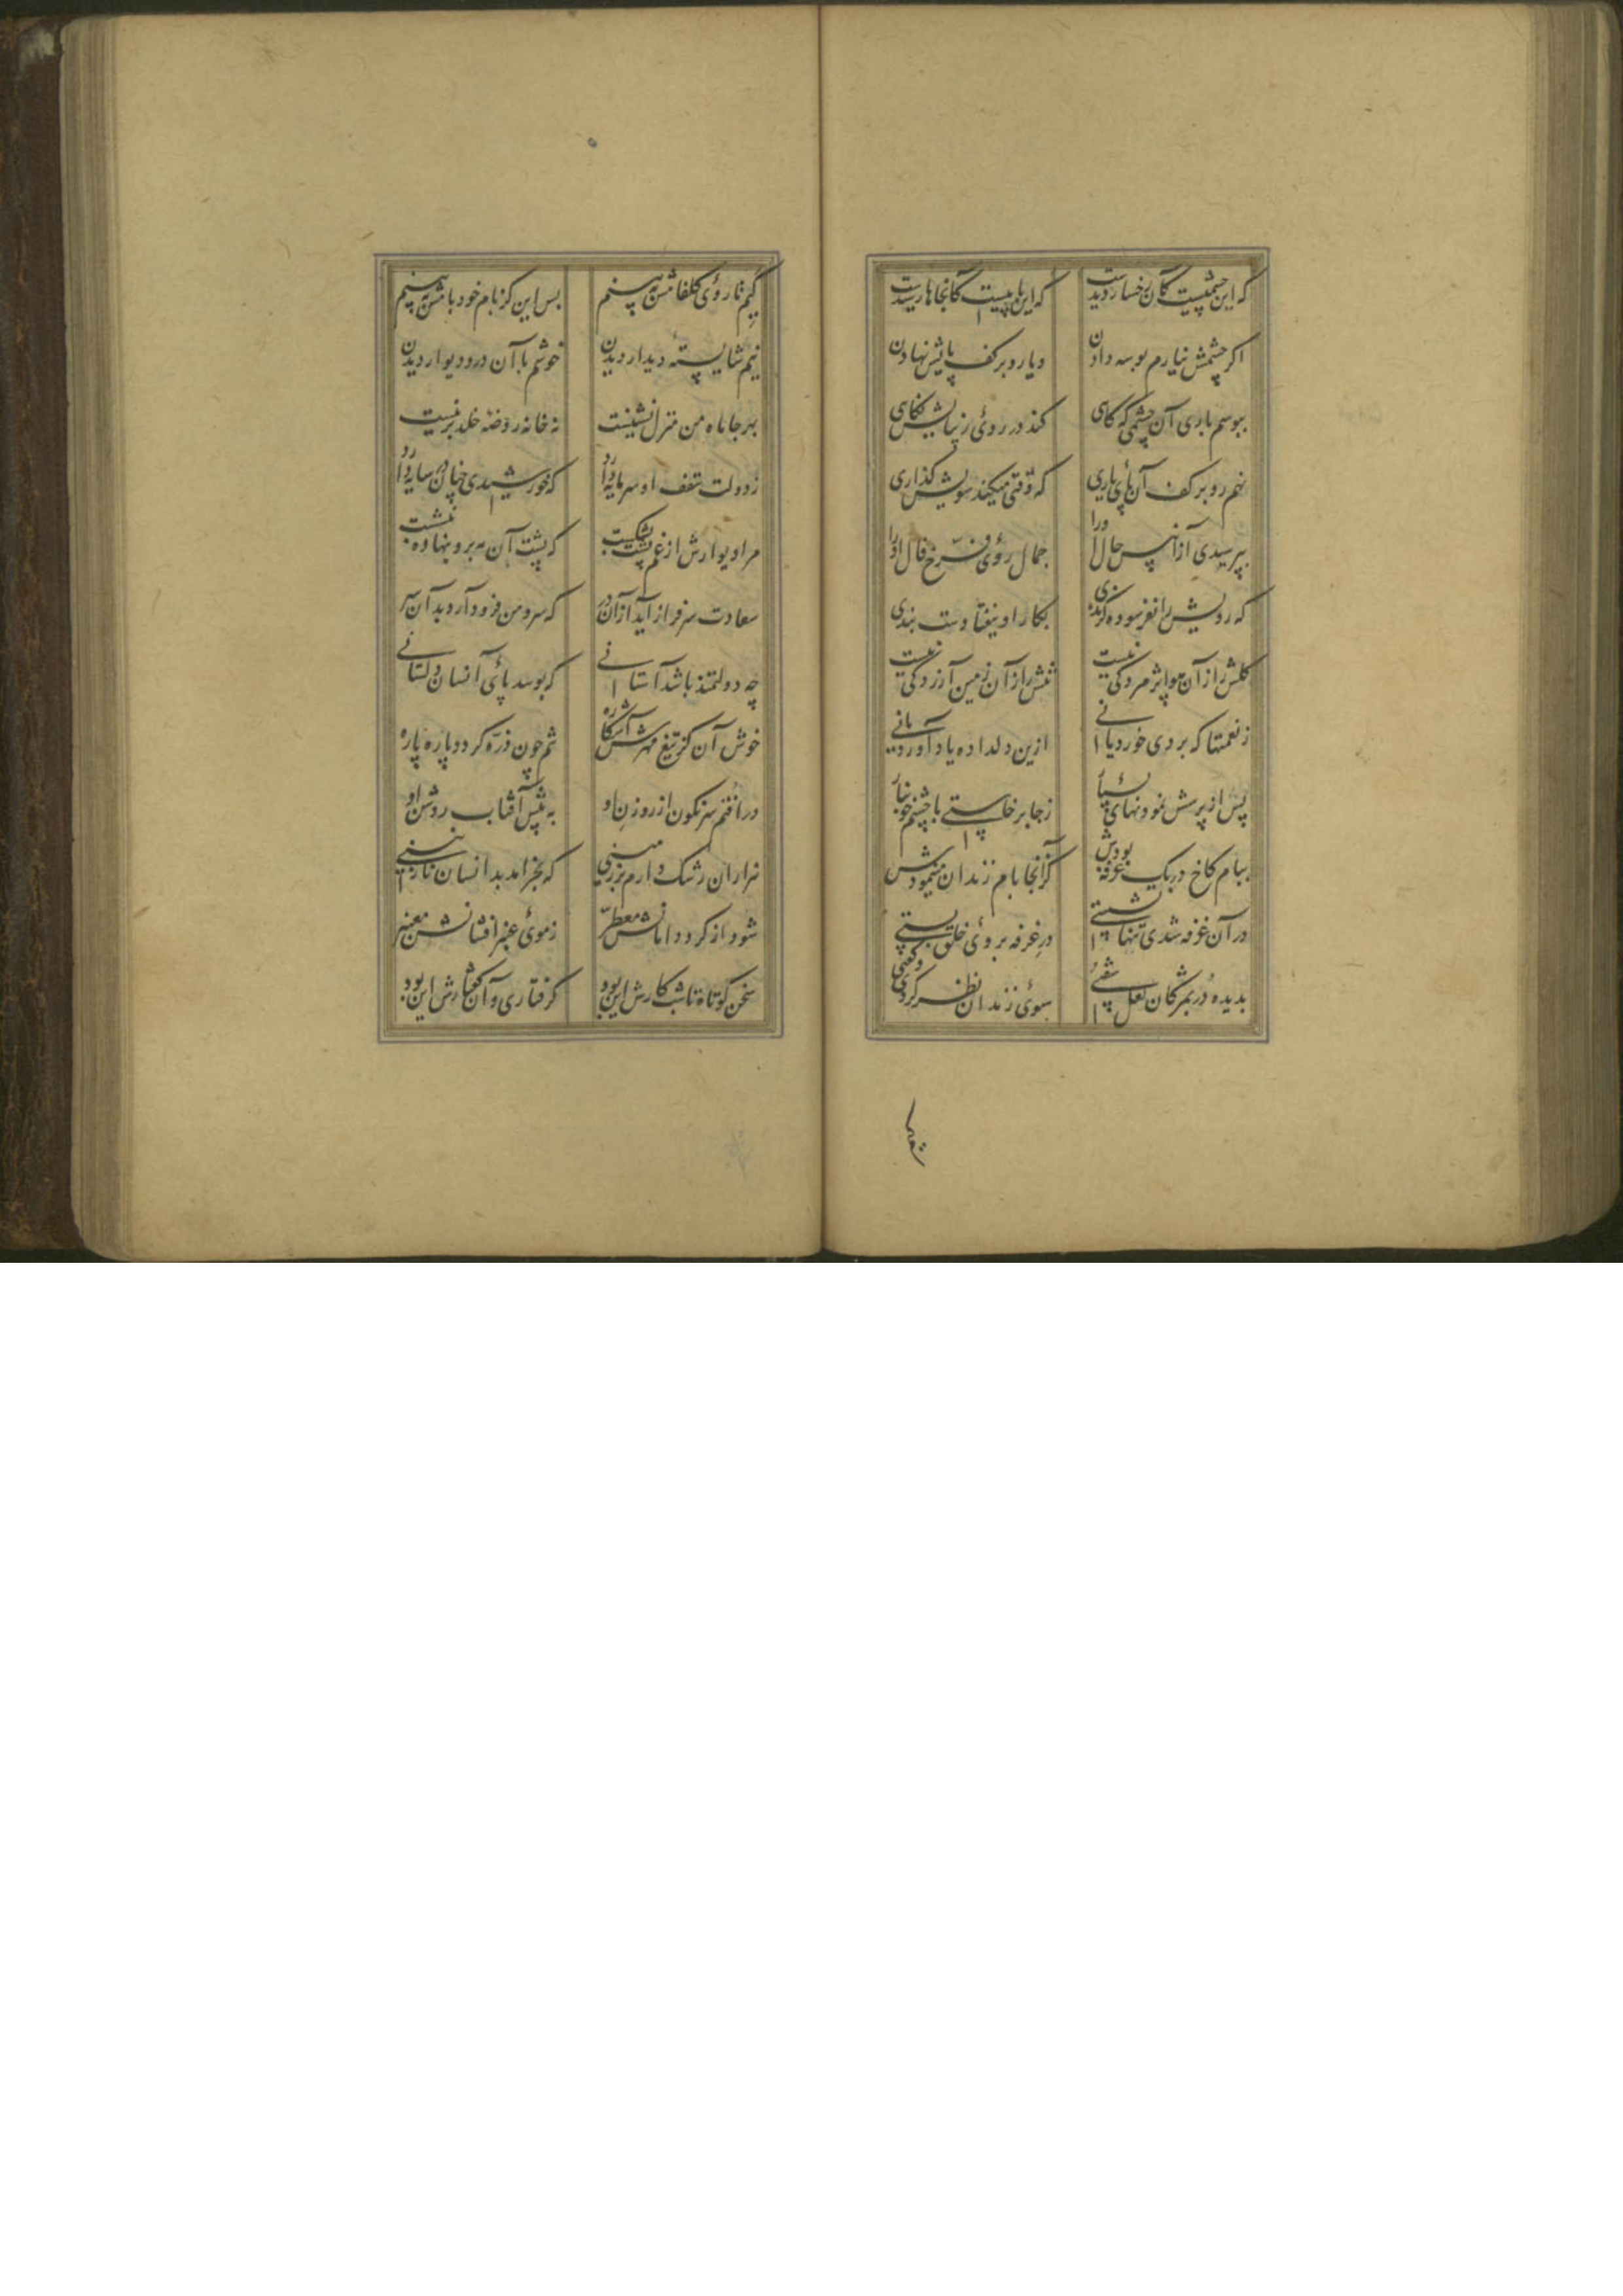 که این چشمیست کان رخسار دیدست که این پاییست کانجاها رسیدست
اگر چشمش نیارم بوسه دادن و یا رو بر کف پایش نهادن
ببوسم باری آن چشمی که گاهی کند در روی زیبایش نگاهی
نهم رو بر کف آن پای باری که وقتی میکند سویش گذاری
بپرسیدی از آن پس حال او را جمال روی فرخ فال او را
که رویش را نفرسوده گزندی بکار او نیفتادست بندی
گلش را از آن هوا پژمردگی نیست تنش را از آن زمین آزردگی نیست
ز نعمتها که بردی خورد یا نی ازین دلداده یاد آورد یا نی
پس از پرسش نمودنهای بسیار ز جا برخاستی با چشم خونبار
ببام کاخ در یک غرفه بودش کز آنجا بام زندان مینمودش
در آن غرفه شدی تنها نشستی در غرفه بروی خلق بستی
بدیده در بمژگان لعل سفتی سوی زندان نظر کردی و گفتی
نیم
کیم تا روی گلفامش ببینم بس این کز بام خود بامش ببینم
نیم شایسته دیدار دیدن خوشم با آن در و دیوار دیدن
بهر جا ماه من منزل نشینست نه خانه روضه خلد برینست
ز دولت سقف او سرمایه دارد که خورشیدی چنان در سایه دارد
مرا دیوارش از غم پشت بشکست که پشت آن مه برو بنهاده بنشست
سعادت سرفراز آید از آن در که سرو من فرود آرد بدآن سر
چه دولتمند باشد آستانی که بوسد پای آنسان دلستانی
خوش آن کز تیغ مهرش آشکاره تنم چون ذره گردد پاره پاره
در افتم سرنگون از روزن او به پیش آفتاب روشن او
هزاران رشک دارم بر زمینی که بخرامد بدانسان نازنینی
شود از گرد دامانش معطر ز موی عنبر افشانش معنبر
سخن کوتاه تا شب کارش این بود گرفتاری و آن گفتارش این بود